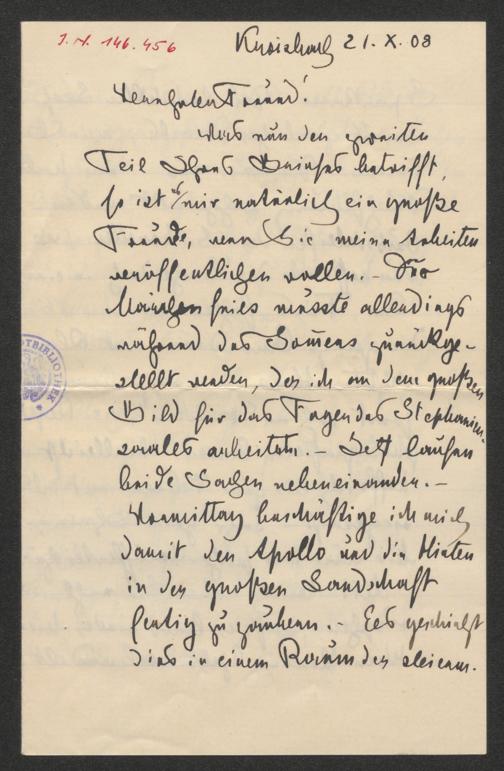 J.N. 146.456
21.X.08
Verehrter Freund!
was nun den zweiten
Teil Ihres Briefes betrifft,
so ist es mir natürlich ein große
Freude, wenn Sie meine Arbeiten
veröffentlichen wollen. – Der
Märchenfries müsste allerdings
während des Somers zurückge-
stellt werden, da ich an dem großen
Bild für das Foyer des
saales arbeitete. – Jetzt laufen
beide Sachen nebeneinander. –
Vormittag beschäftige ich mich
damit den Apollo und die Hirten
in der großen Landschaft
fertig zu zaubern. – Es geschieht
dies in einem Raum der